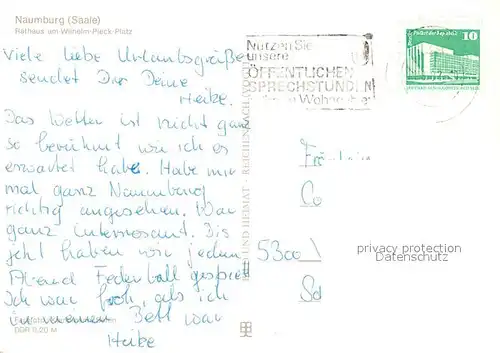 Naumburg (Saale)
Rathaus am Wilhelm-Pieck-Platz
Viele liebe Urlaubsgrüße
sendet Dir Deine
Heike.
Das Wetter ist nicht ganz
so berühmt wie ich es
erwartet habe. Habe mir
mal ganz Naumburg
richtig angesehen. War
ganz interessant. Bis
jetzt haben wir jeden
Abend Federball gespielt
Ich war froh, als ich
in meinem Bett war
Heike
DDR 0,20 M
BILD UND HEIMAT REICHENBACH
Nutzen Sie
unsere
ÖFFENTLICHEN
SPRECHSTUNDEN
10
Fräulein
Co
5300
Sd
privacy protection
Datenschutz